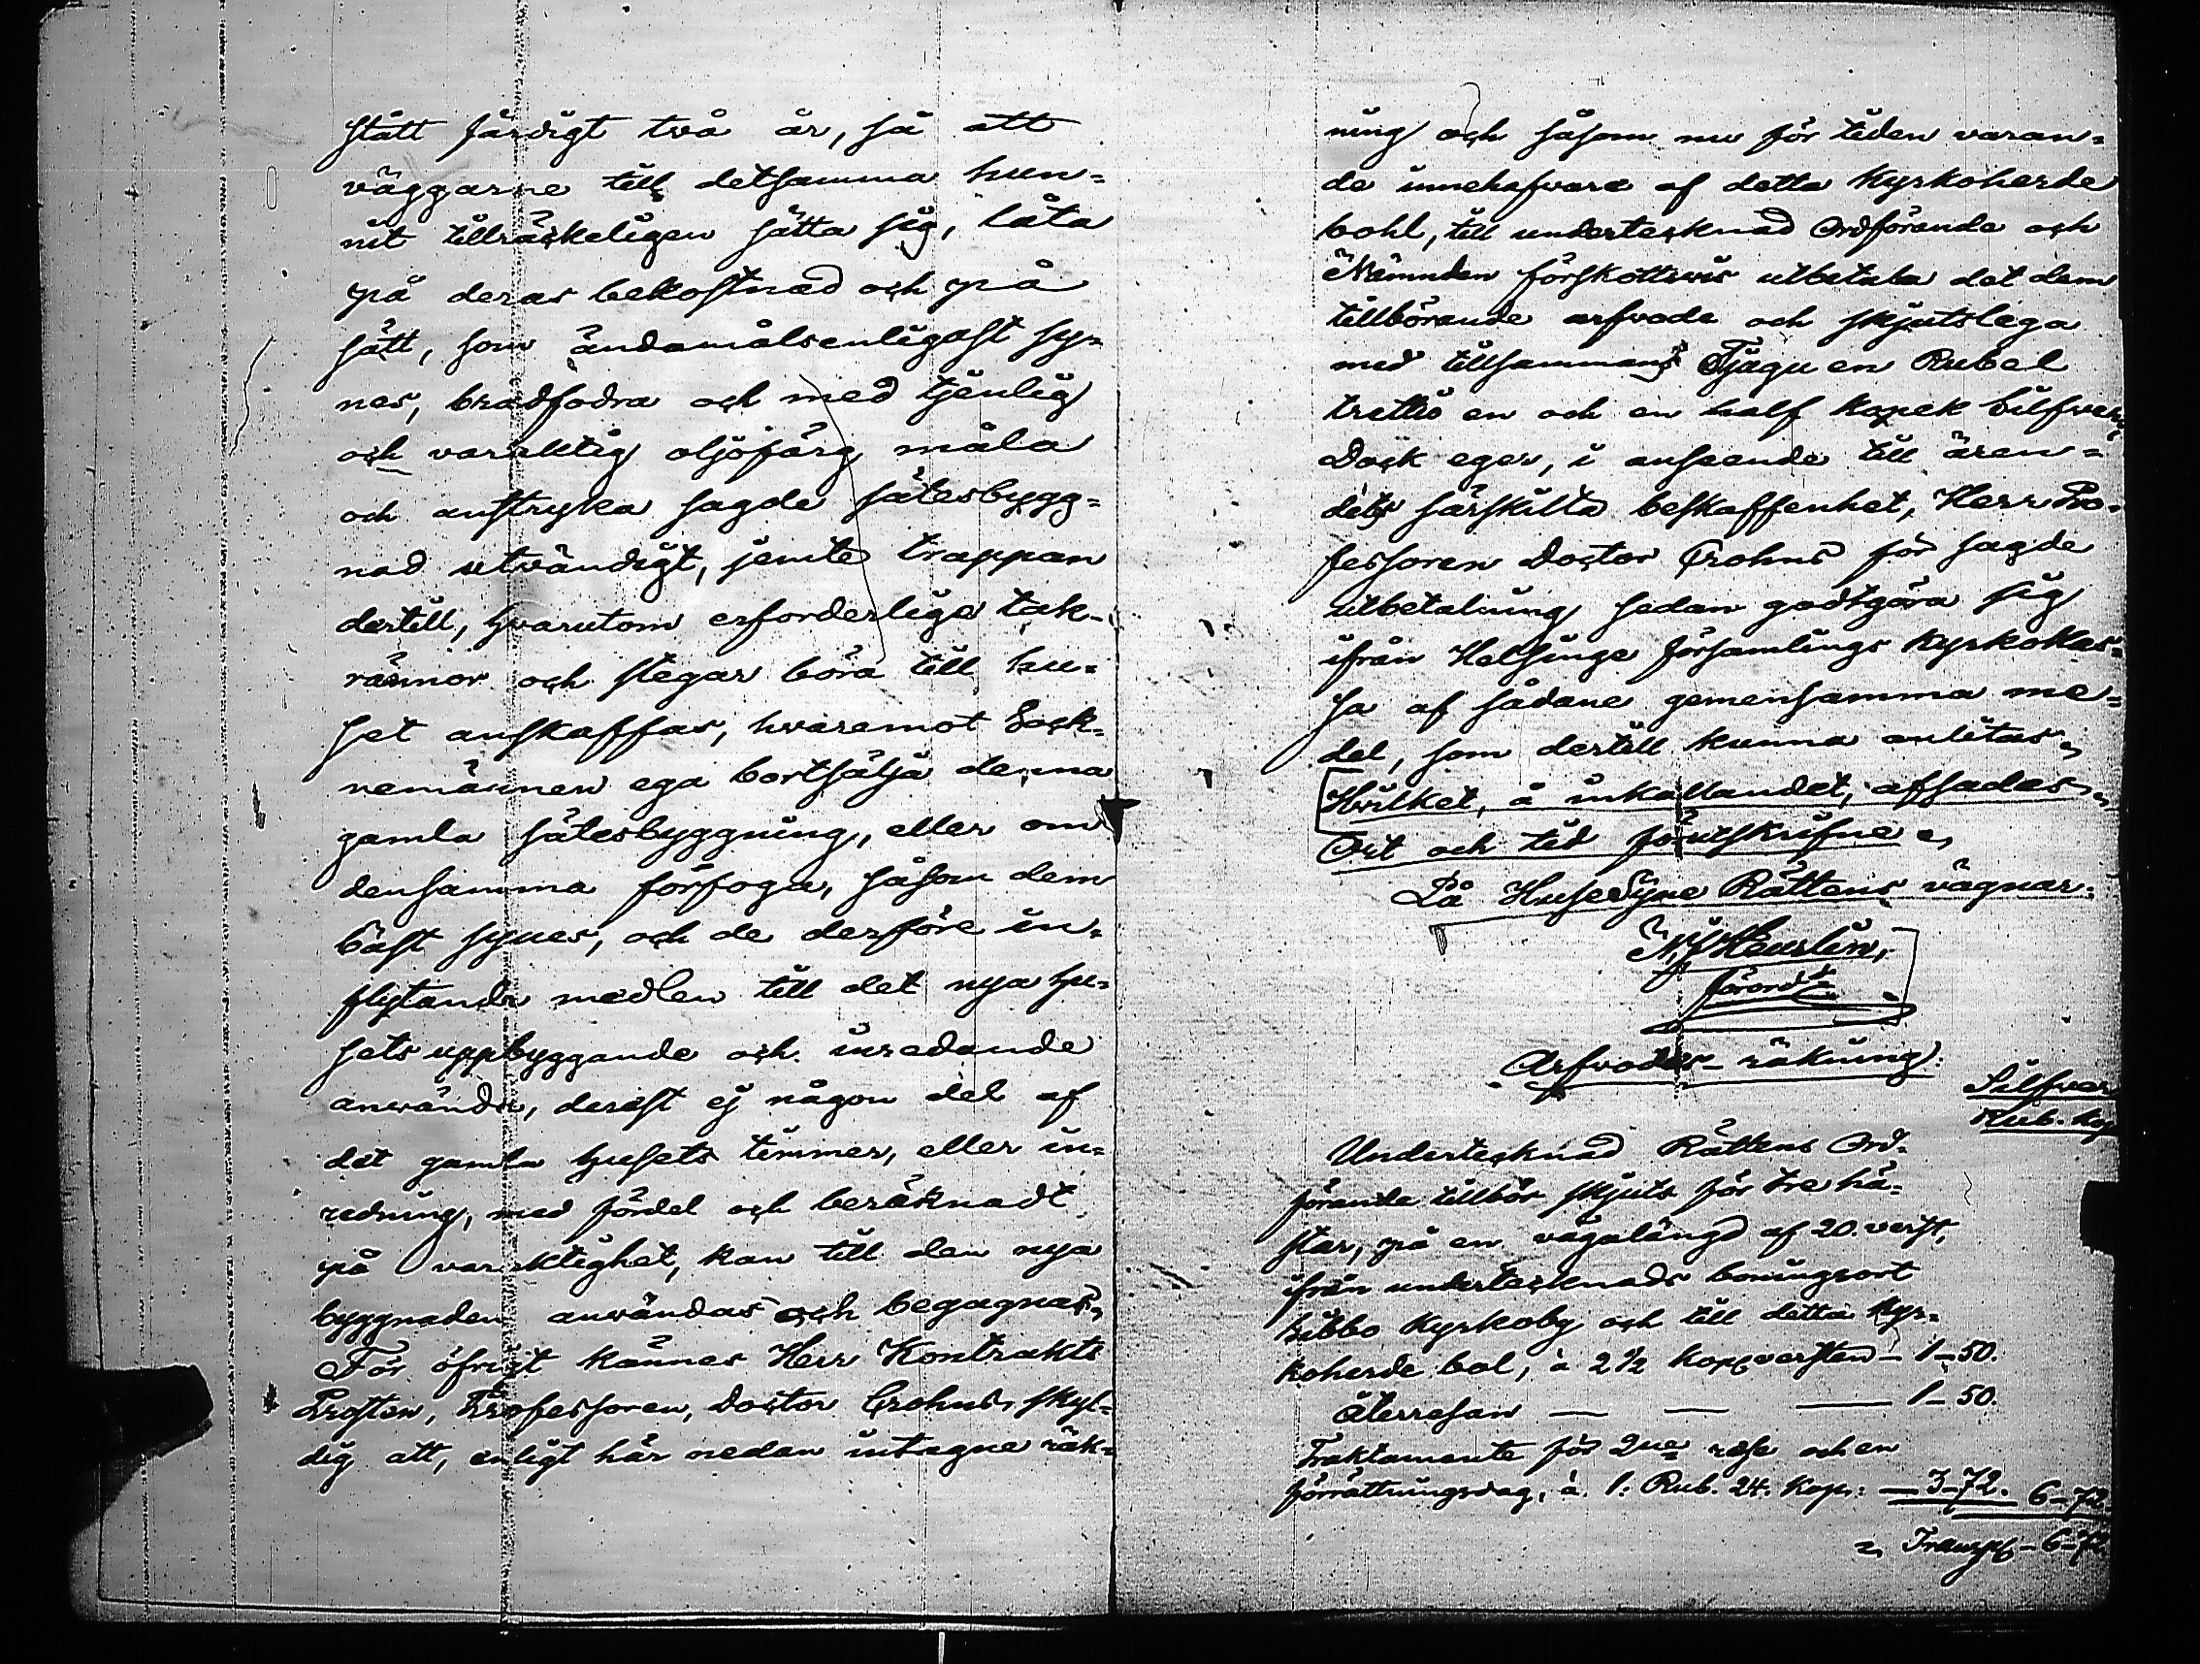 stått färdigt två år, så att
väggarne till detsamma hun-
nit tillräckeligen sätta sig, låta
på deras bekostnad och på
sätt, som ändamålsenligast sy-
nes, brädfodra och med tjenlig
och varaktig oljofärg måla
och anstryka sagde sätesbygg-
nad utvändigt, jemte trappan
dertill, hvarutom erforderlige tak-
rännor och stegar böra till hu-
set anskaffas, hvaremot Sock-
nemännen ega bortsälja denna
gamla sätesbyggning, eller om
densamma förfoga, såsom dem
bäst synes, och de derföre in-
flytande medlen till det nya hu-
sets uppbyggande och inredande
använda, derest ej någon del af
det gamla husets timmer, eller in-
redning, med fördel och beräknadt
på varaktighet, kan till den nya
byggnaden användas och begagnas.
För öfrigt kännes Herr Kontrakts
Prosten, Professoren, Doctor Crohns, skyl-
dig att, enligt här nedan intagne räk-
ning och såsom nu för tiden varan-
de innehafvare af detta Kyrkoherde
bohl, till undertecknad Ordförande och
Nämnden förskottsvis utbetala det dem
tillhörande arfvode och skjutslega
med tillsammans Tjugu en Rubel
trettio en och en half kopek Silfver,
Dock eger, i anseende till ären-
dets särskilta beskaffenhet, Herr Pro-
fessoren Doctor Crohns för sagde
utbetalning sedan godtgöra sig
ifrån Helsinge församlings Kyrkokas-
sa af sådane gemensamma me-
del, som dertill kunna anlitas.
Hvilket, å inkallandet, afsades.
Ort och tid förutskrifne.
På HuseSyne Rättens vägnar:
förord
Arfvodes-räkning.
Silfver
Rub. Kop
Undertecknad Rättens Ord-
förande tillhör skjuts för tre hä-
star, på en vägalängd af 20. verst,
ifrån undertecknads boningsort
Sibbo Kyrkoby och till detta Kyr-
koherde bol, à 2 1/2 kop. versten - 1-50.
Återresan — — — 1-50.
Traktamente för 2ne rese och en
förrättningsdag, à 1. Rub. 24. Kop: — 3-72. 6-72.
Transp. - 6-72